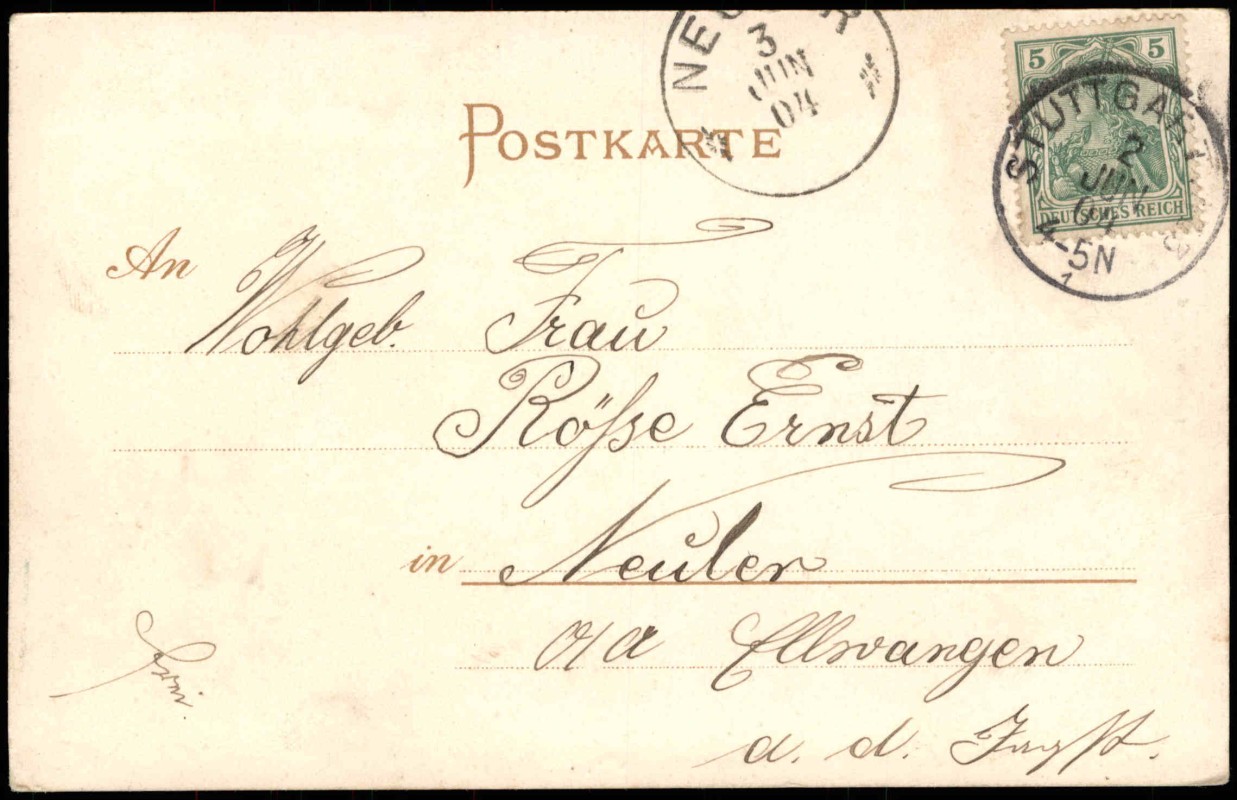 POSTKARTE
NEULER
3
JUN
04
5 5
DEUTSCHES REICH
STUTTGART
2
JUN
04
4-5N
An
Wohlgeb. Frau
Röſse Ernst
in Neuler
O/A Ellwangen
a. d. Jagst.